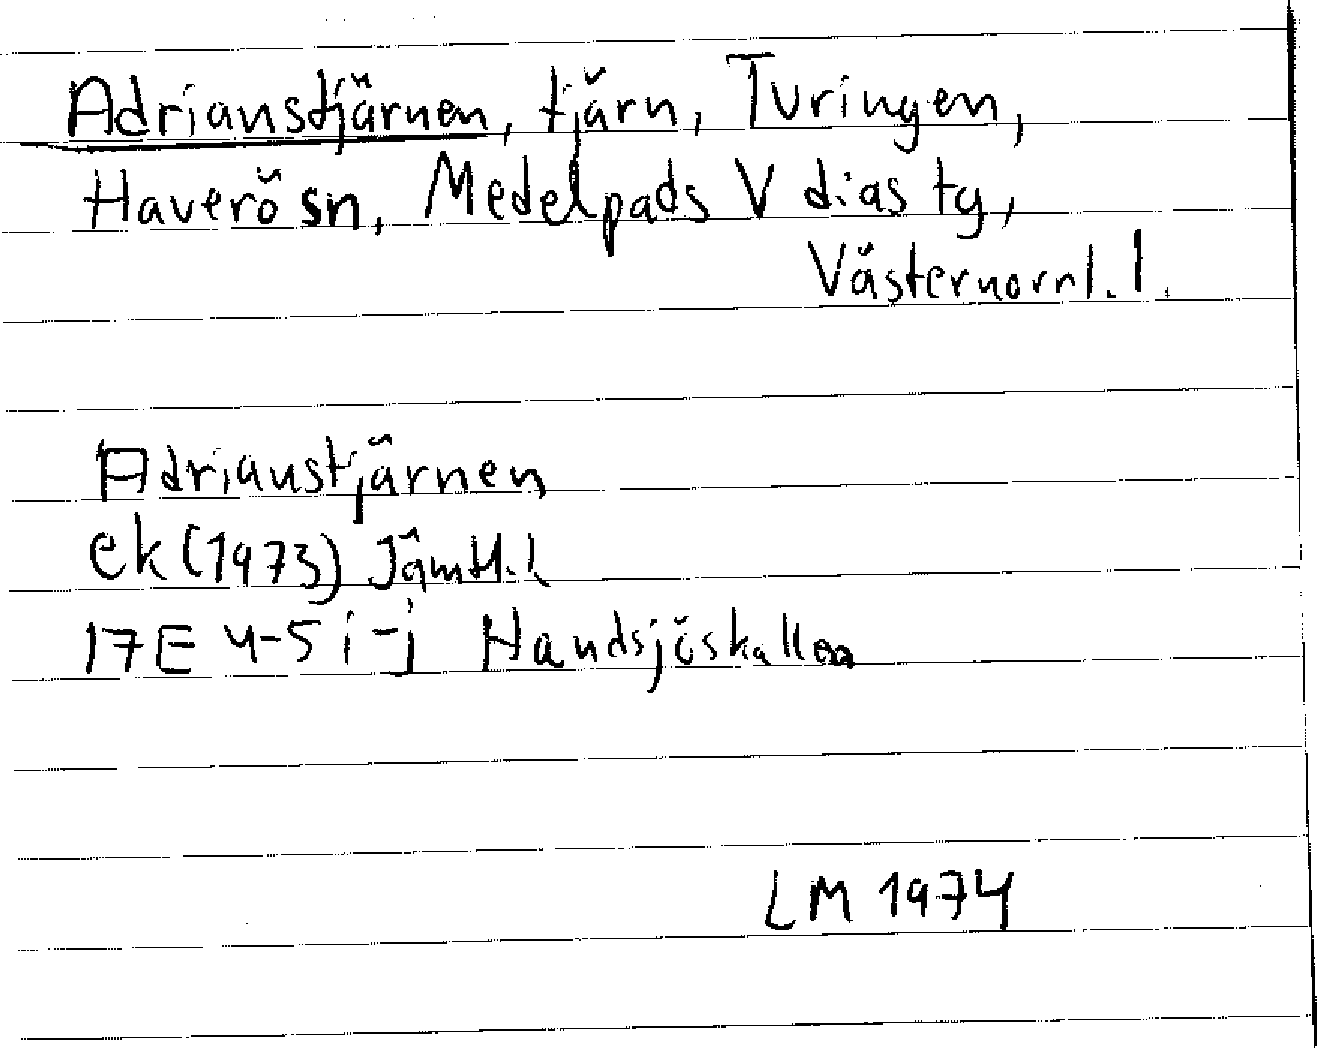 Adrianstjärnen, tjärn, Turingen,
Haverö sn, Medelpads V d:as tg,
Västernorrl. l.
Adrianstjärnen
ek (1973) Jämtl. l
17E 4-5 i-j Handsjöskallen
LM 1974